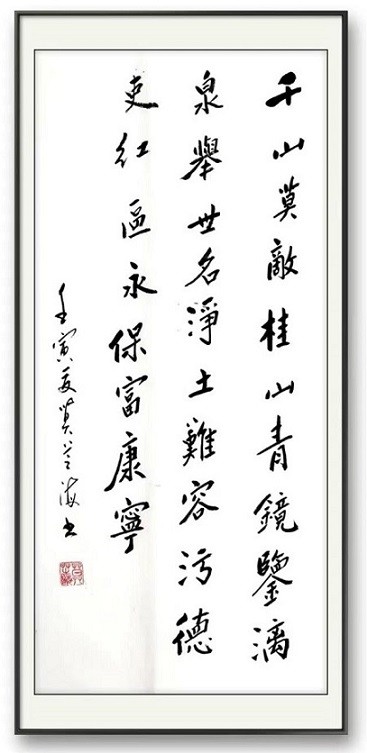 千山莫敵桂山青鏡鑒漓
泉舉世名淨土難容污德
吏紅區永保富康寧
壬寅夏黄兰海书